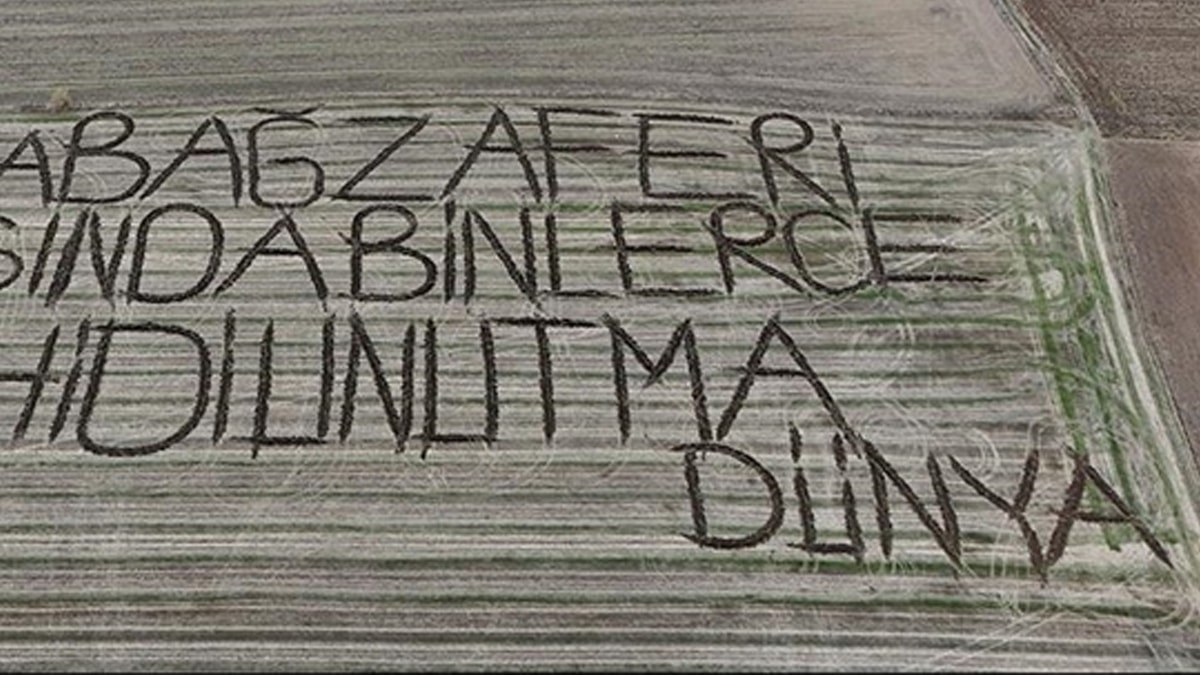 ABAĞ ZAFERİ
SINDA BİNLERCE
HİDİ UNUTMA
DÜNYA